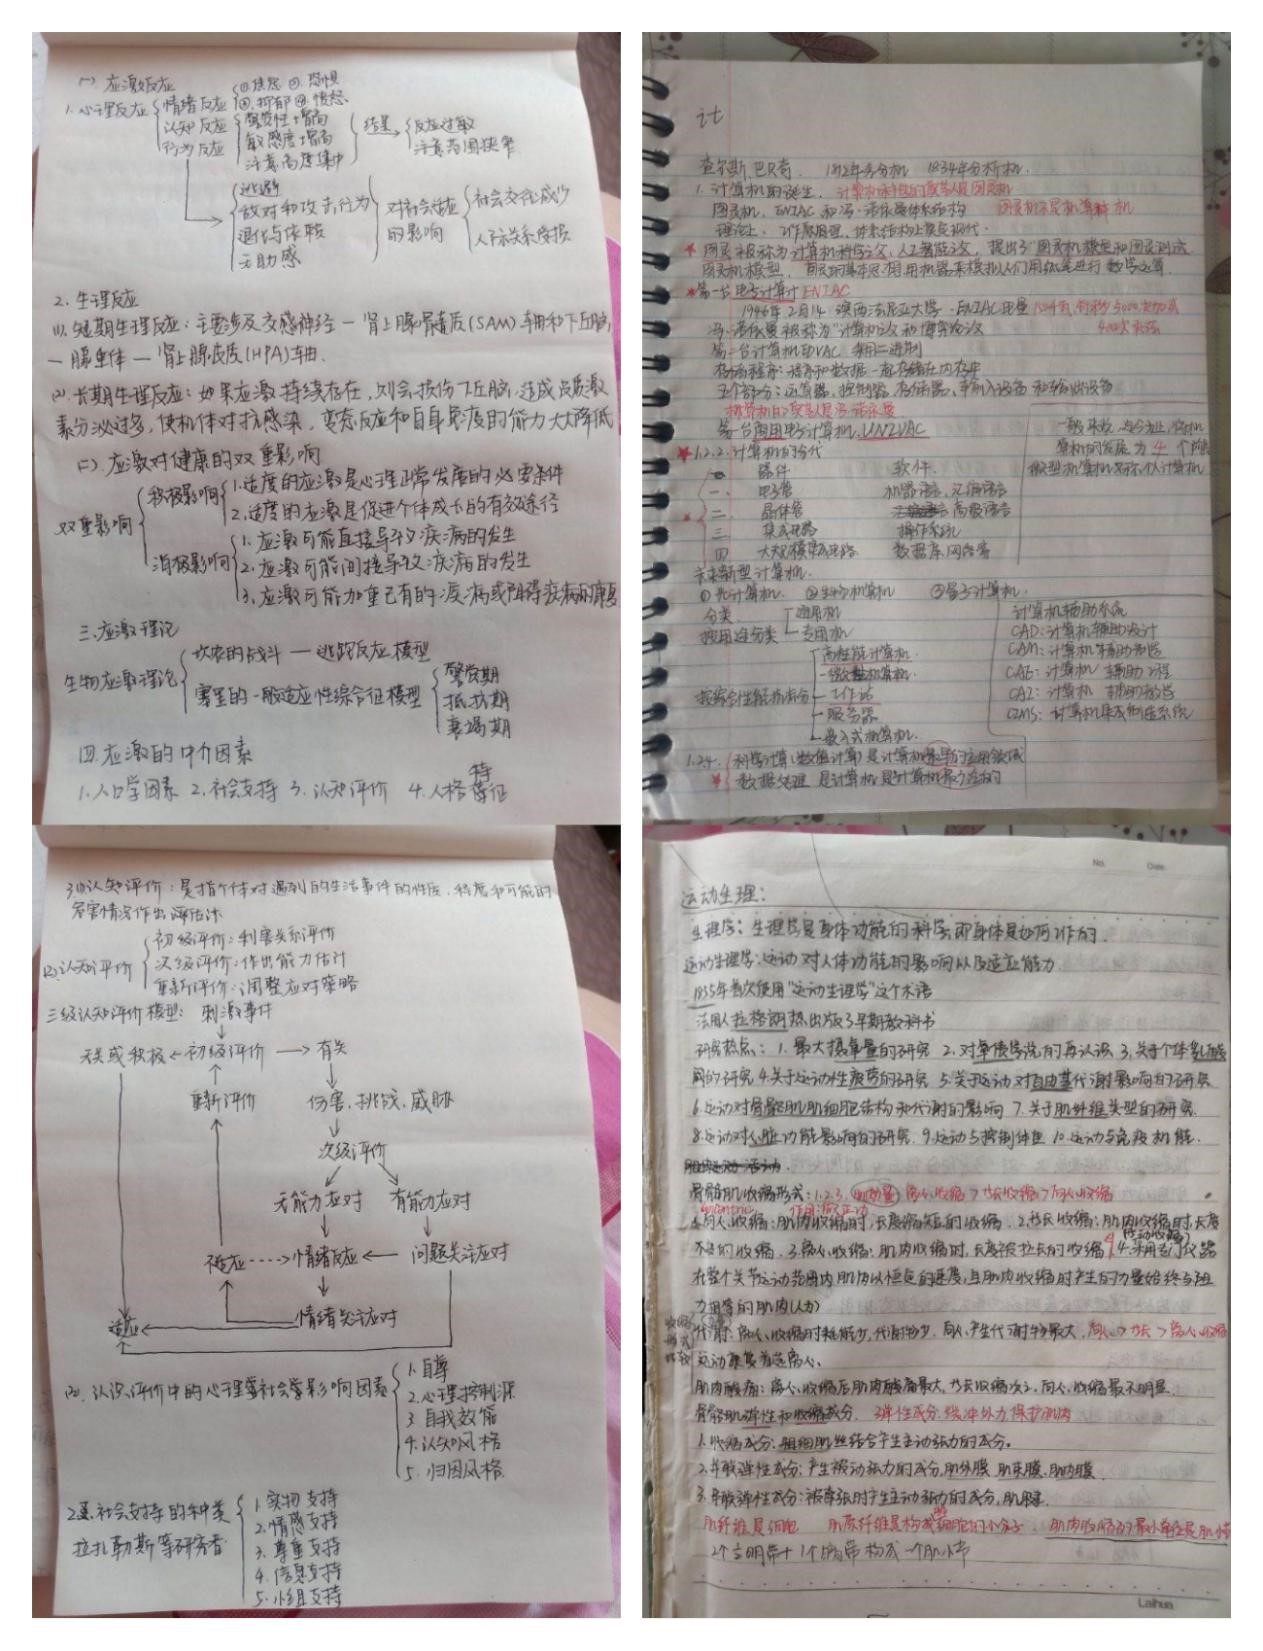 (一) 应激反应
1.心理反应 情绪反应 ①.焦虑 ②.恐惧
③.抑郁 ④.愤怒
认知反应 警觉性增高
敏感度增高
注意高度集中
结果 反应过敏
注意范围狭窄
行为反应
逃避
敌对和攻击行为
退化与依赖
无助感
对社会适应的影响
社会交往减少
人际关系受损
2. 生理反应
(1). 短期生理反应：主要涉及交感神经—肾上腺髓质(SAM)轴和下丘脑
—腺垂体—肾上腺皮质(HPA)轴.
(2). 长期生理反应：如果应激持续存在,则会损伤下丘脑,造成皮质激
素分泌过多,使机体对抗感染,变态反应和自身免疫的能力大大降低
(二) 应激对健康的双重影响
双重影响
积极影响 1.适度的应激是心理正常发展的必要条件
2.适度的应激是促进个体成长的有效途径
消极影响 1.应激可能直接导致疾病的发生
2.应激可能间接导致疾病的发生
3.应激可能加重已有的疾病或阻碍疾病的康复
三.应激理论
生物应激理论 坎农的战斗—逃跑反应模型
塞里的一般适应性综合征模型 警觉期
抵抗期
衰竭期
四.应激的中介因素
1.人口学因素 2.社会支持 3.认知评价 4.人格特征
3.(1)认知评价：是指个体对遇到的生活事件的性质、程度和可能的
危害情况作出评估
(2).认知评价 初级评价：利害关系评价
次级评价：作出能力估计
重新评价：调整应对策略
三级认知评价模型： 刺激事件
无关或积极 初级评价 有关
重新评价 伤害、挑战、威胁
次级评价
无能力应对 有能力应对
不适应 情绪反应 问题关注应对
情绪关注应对
适应
(3). 认识评价中的心理学社会学影响因素
1.自尊
2.心理控制源
3 自我效能
4.认知风格
5. 归因风格
2.社会支持的种类
拉扎勒斯等研究者
1.实物支持
2.情感支持
3.尊重支持
4.信息支持
5.小组支持
计
查尔斯.巴贝奇. 1812年差分机 1834年分析机.
1. 计算机的诞生. 计算机科学的奠基人是图灵机
图灵机, ENIAC 和冯·诺依曼体系结构 图灵机不是机算机
理论上、工作原理、体系结构上奠定现代.
★ 图灵被称为计算机科学之父、人工智能之父, 提出了"图灵机模型和图灵测试
图灵机模型, 图灵的基本思想用机器来模拟人们用纸笔进行数学运算.
★第一台电子计算计 ENIAC
1946年2月14 宾西法尼亚大学. ENIAC
冯·诺依曼被称为"计算机之父和博弈论之父
第一台计算机EDVAC 采用二进制
存储程序：程序和数据一起存储在内存中
五个部分：运算器、控制器、存储器、输入设备和输出设备
第一台商用电子计算机.UNIVAC
★1.2.2.计算机的时代
器件 软件.
一、 电子管 机器语言、汇编语言
二、 晶体管 高级语言
三 集成电路 操作系统
四 大规模集成电路 数据库网络等
未来新型计算机.
①光计算机. ②生物计算机 ③量子计算机.
分类.
按用途分类 通用机
专用机
按综合性能指标分 高性能计算机.
微型计算机.
工作站
服务器
嵌入式计算机.
计算机辅助系统
CAD：计算机辅助设计
CAM：计算机辅助制造
CAE：计算机辅助工程
CAI：计算机辅助教学
CIMS：计算机集成制造系统
1.2.4. 科学计算(数值计算)是计算机最早的应用领域
★ 数据处理 是计算机是计算机最广泛的
No. Date.
运动生理：
生理学：生理学是身体功能的科学,即身体是如何工作的.
运动生理学：运动对人体功能的影响以及适应能力.
1855年首次使用"运动生理学"这个术语
法国人拉格朗热出版了早期教科书
研究热点：1. 最大摄氧量的研究 2. 对氧债学说的再认识 3.关于个体乳酸
阈的研究 4.关于运动性疲劳的研究 5.关于运动对自由基代谢影响的研究
6.运动对骨骼肌肌细胞结构和代谢的影响 7. 关于肌纤维类型的研究.
8.运动对心脏功能影响的研究. 9.运动与控制体重 10.运动与免疫机能.
骨骼肌收缩形式：1.2.3. 离心收缩>等长收缩>向心收缩
1.向心收缩：肌肉收缩时,长度缩短的收缩. 2.等长收缩：肌肉收缩时长度
不变的收缩. 3.离心收缩：肌肉收缩时,长度被拉长的收缩 4.采用专门仪器
在整个关节运动范围内肌肉以恒定的速度,且肌肉收缩时产生的力量始终与阻
力相等的肌肉(人力)
代谢：离心收缩时耗能少,代谢物少. 向心产生代谢物最大, 向心>等长>离心收缩
运动康复首选离心.
肌肉酸痛：离心收缩后肌肉酸痛最大,等长收缩次之,向心收缩最不明显.
骨骼肌弹性和收缩成分. 弹性成分.缓冲外力保护肌肉
1.收缩成分：粗细肌丝结合产生主动张力的成分.
2.并联弹性成分：产生被动张力的成分,肌外膜 肌束膜.肌内膜
3.串联弹性成分：被牵张时产生主动张力的成分,肌腱.
肌纤维是细胞 肌原纤维是构成细胞的小分子. 肌肉收缩的最小单位是肌小节
2个½明带+1个暗带构成一个肌小节
Laihua